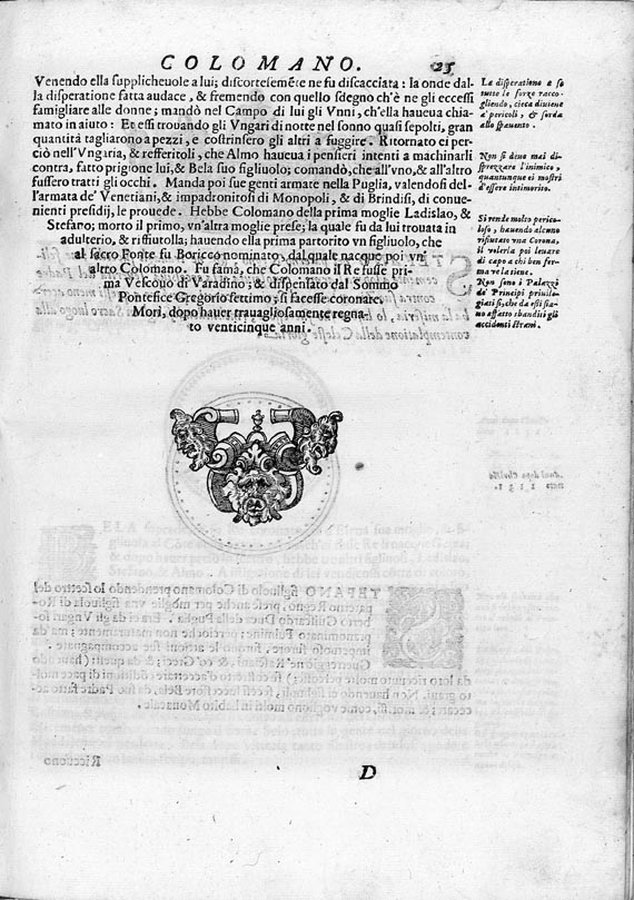 COLOMANO. 25
Venendo ella supplicheuole a lui; discortesemẽte ne fu discacciata: la onde dal-
la disperatione fatta audace, & fremendo con quello sdegno ch'è ne gli eccessi
famigliare alle donne; mandò nel Campo di lui gli Vnni, ch'ella haueua chia-
mato in aiuto: Et essi trouando gli Vngari di notte nel sonno quasi sepolti, gran
quantità tagliarono a pezzi, e costrinsero gli altri a fuggire. Ritornato ei per-
ciò nell'Vngaria, & refferitoli, che Almo haueua i pensieri intenti a machinarli
contra, fatto prigione lui, & Bela suo figliuolo; comandò, che all'vno, & all'altro
fussero tratti gli occhi. Manda poi sue genti armate nella Puglia, valendosi del-
l'armata de' Venetiani, & impadronitosi di Monopoli, & di Brindisi, di conue-
nienti presidij, le prouede. Hebbe Colomano della prima moglie Ladislao, &
Stefano; morto il primo, vn'altra moglie prese; la quale fu da lui trouata in
adulterio, & riffiutolla; hauendo ella prima partorito vn figliuolo, che
al sacro Fonte fu Boricco nominato, dal quale nacque poi vn'
altro Colomano. Fu fama, che Colomano il Re fusse pri-
ma Vescouo di Varadino; & dispensato dal Sommo
Pontefice Gregorio settimo; si facesse coronare.
Morì, dopo hauer trauagliosamente regna-
to venticinque anni.
La disperatione a se
tutte le forze racco-
gliendo, cieca diuiene
a' pericoli, & sorda
allo spauento.
Non si deue mai di-
sprezzare l'inimico,
quantunque ei mostri
d'essere intimorito.
Si rende molto perico-
loso, hauendo alcuno
rifiutato vna Corona,
il volerla poi leuare
di capo a chi ben fer-
ma ve la tiene.
Non sono i Palazzi
de' Principi priuile-
giati sì, che da essi sia-
no affatto sbanditi gli
accidenti strani.
D